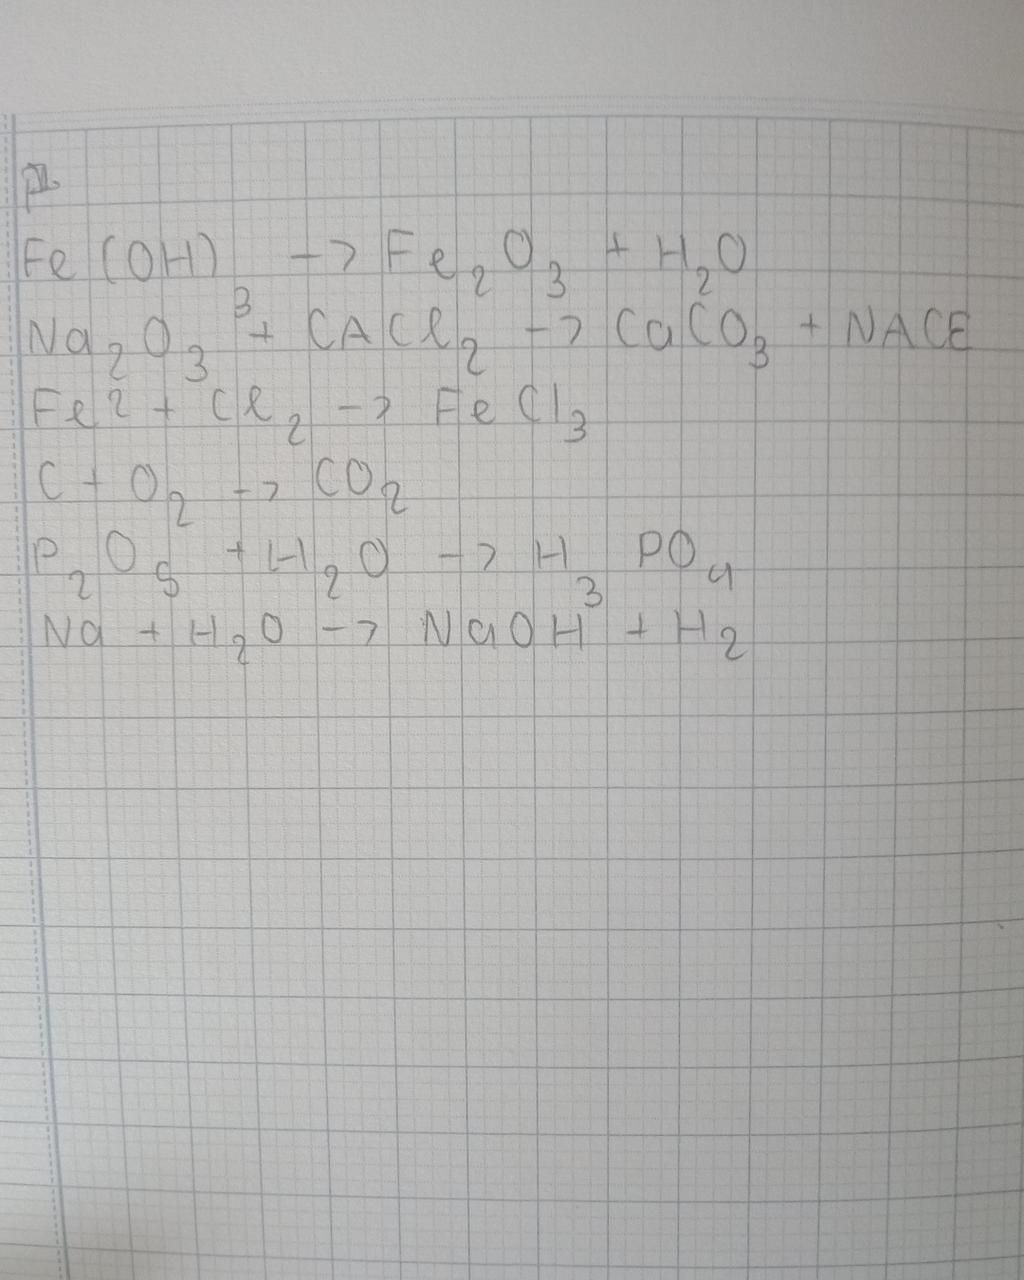 Fe(OH)₃ -> Fe₂O₃ + H₂O
Na₂O₃ + CACl₂ -> CaCO₃ + NACE
Fe2 + Cl₂ -> FeCl₃
C + O₂ -> CO₂
P₂O₅ + H₂O -> H₃PO₄
Na + H₂O -> NaOH + H₂